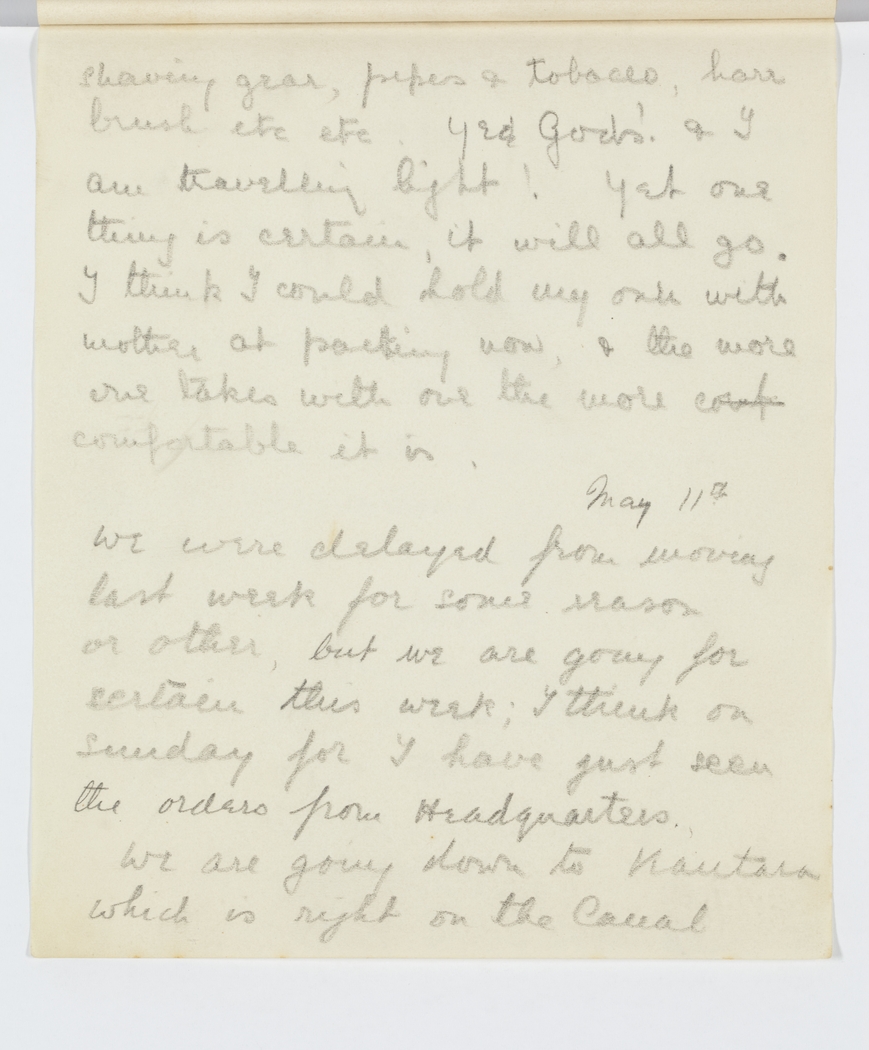 shaving gear, pipes & tobacco, hair
brush etc etc. Yea Gods! & I
am travelling light! Yet one
thing is certain, it will all go.
I think I could hold my own with
mother at packing now, & the more
one takes with one the more comf
comfortable it is.
May 11th
We were delayed from moving
last week for some reason
or other, but we are going for
certain this week; I think on
Sunday for I have just seen
the orders from Headquarters.
We are going down to Kantara
which is right on the Canal